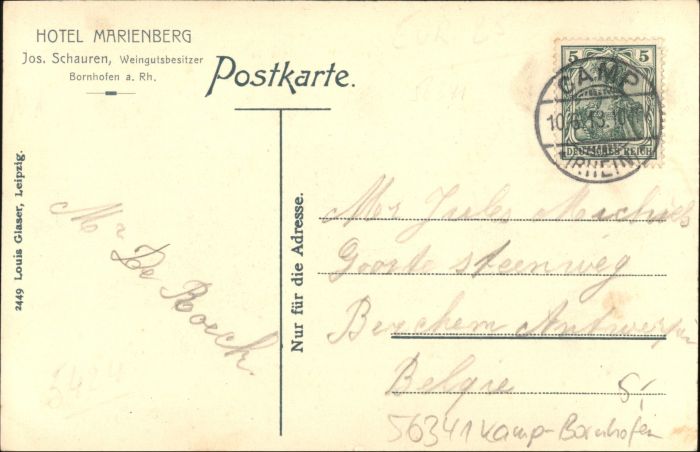 HOTEL MARIENBERG
Jos. Schauren, Weingutsbesitzer
Bornhofen a. Rh.
Postkarte.
5 5
CAMP
10.6.13.10
(RHEIN)
DEUTSCHES REICH
2449 Louis Glaser, Leipzig.
Nur für die Adresse.
Mr De Roeck.
Mr Jules Michiels
steenweg
Berchem Antwerpen
Belgie
56341 Kamp-Bornhofen
5424